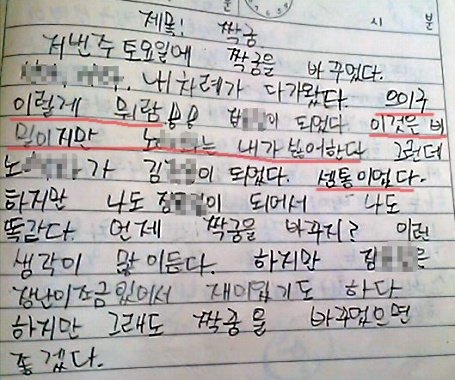 시 분
제목: 짝궁
저번주 토요일에 짝궁을 바꾸었다.
내 차례가 다가왔다. 으이구
이럴게 뭐람!! 이 되었다 이것은 비
밀이지만 노 는 내가 싫어한다 그런데
노 가 김 이 되었다. 쌤통이었다.
하지만 나도 이 되어서 나도
똑같다. 언제 짝궁을 바꾸지? 이런
생각이 많이든다. 하지만 은
장난이조금있어서 재미있기도 하다
하지만 그래도 짝궁을 바꾸었으면
좋겠다.